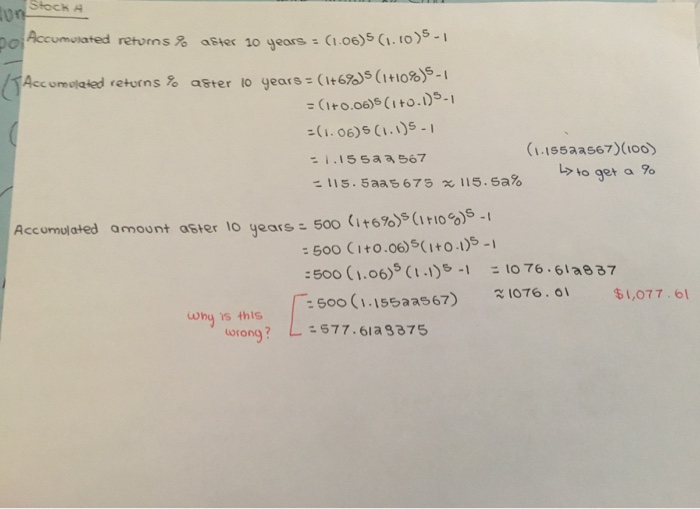 Stock A
Accumulated returns % after 10 years = (1.06)⁵ (1.10)⁵ - 1
Accumulated returns % after 10 years = (1+6%)⁵ (1+10%)⁵ - 1
= (1+0.06)⁵ (1+0.1)⁵ - 1
= (1.06)⁵ (1.1)⁵ - 1
= 1.15522567
= 115.5225675 ≈ 115.52%
(1.15522567)(100)
↳ to get a %
Accumulated amount after 10 years = 500 (1+6%)⁵ (1+10%)⁵ - 1
= 500 (1+0.06)⁵ (1+0.1)⁵ - 1
= 500 (1.06)⁵ (1.1)⁵ - 1 = 1076.612837
≈ 1076.01 $1,077.61
why is this wrong?
= 500 (1.15522567)
= 577.6129375